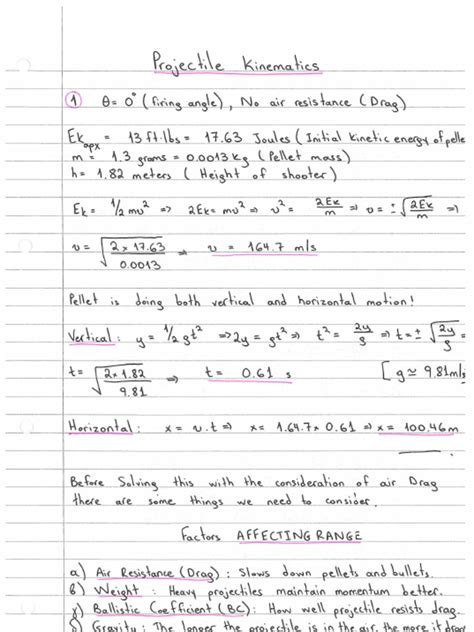 Projectile Kinematics
① θ = 0° (firing angle), No air resistance (Drag)
Ek apx = 13 ft·lbs = 17.63 Joules (Initial kinetic energy of pelle
m = 1.3 grams = 0.0013 kg (Pellet mass)
h = 1.82 meters (Height of shooter)
Ek = 1/2 mv² => 2Ek = mv² => v² = 2Ek/m => v = ±√(2Ek/m) =>
v = √(2 × 17.63 / 0.0013) => v = 164.7 m/s
Pellet is doing both vertical and horizontal motion!
Vertical: y = 1/2 gt² => 2y = gt² => t² = 2y/g => t = ±√(2y/g) =
t = √(2×1.82 / 9.81) => t = 0.61 s [g ≃ 9.81m/s
Horizontal: x = v.t => x = 1.64.7 × 0.61 => x = 100.46m
Before Solving this with the consideration of air Drag
there are some things we need to consider.
Factors AFFECTING RANGE
α) Air Resistance (Drag): Slows down pellets and bullets.
β) Weight: Heavy projectiles maintain momentum better.
γ) Ballistic Coefficient (BC): How well projectile resists drag.
δ) Gravity: The longer the projectile is in the air, the more it drop